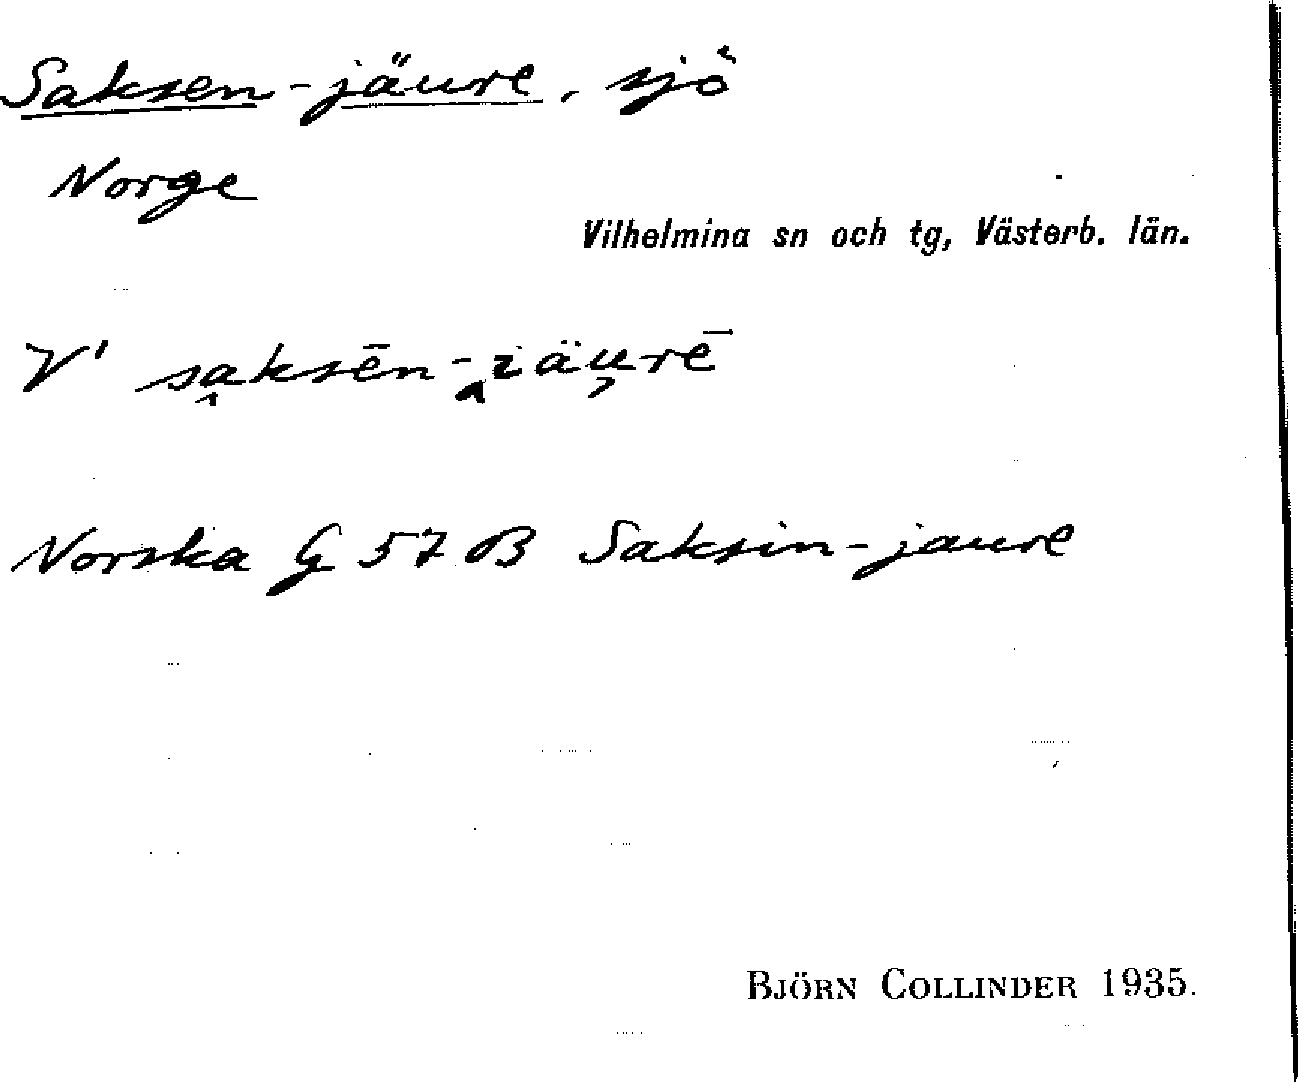 Saksen-jäure, sjö
Norge
Vilhelmina sn och tg, Västerb. län.
V' sa̭ksēn-i̭äu̦rē
Norska G 57 B Saksin-jaure
BJÖRN COLLINDER 1935.